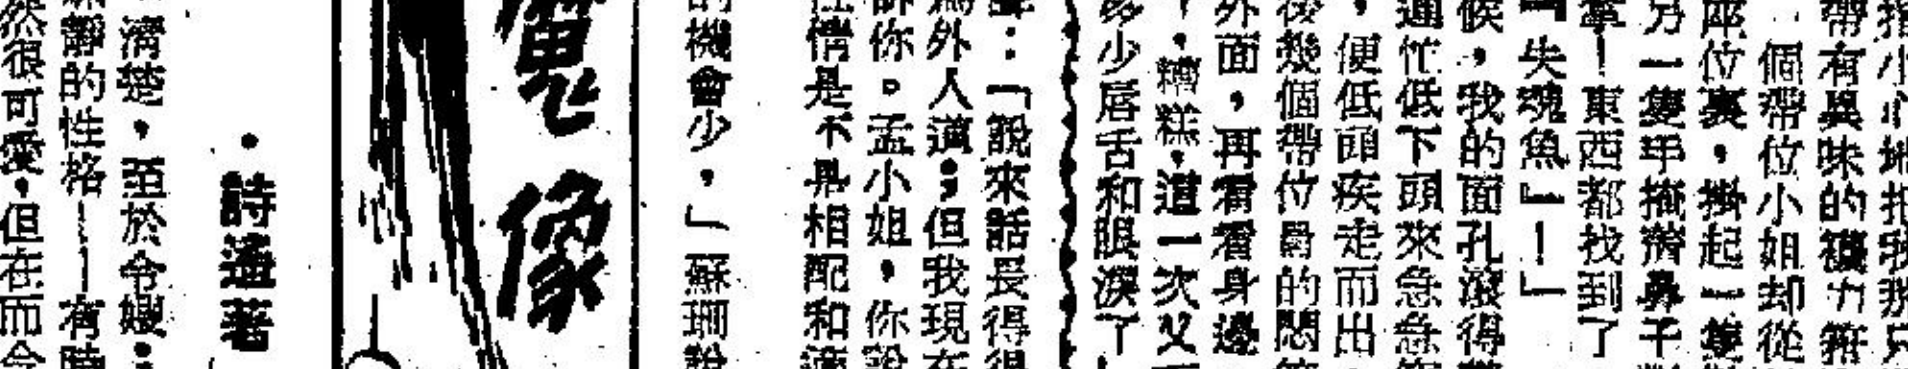 指小心地把我
帶有異味的
個帶位小姐却從
座位裏，掛起一隻
另一隻手掩着鼻子
拿！東西都找到了
叫失魂魚』！」
候，我的面孔滾得
通忙低下頭來急急
，便低頭疾走而出
後幾個帶位員的悶
外面，再看看身邊
，糟糕，這一次又
多少唇舌和眼淚了
：「說來話長得很
為外人道；但我現在
訴你。孟小姐，你說
性情是不是相配和
的機會少，」蘇珊說
像
•詩遙著
清楚，至於令嫂
靜的性格——有時
然很可愛，但在而今